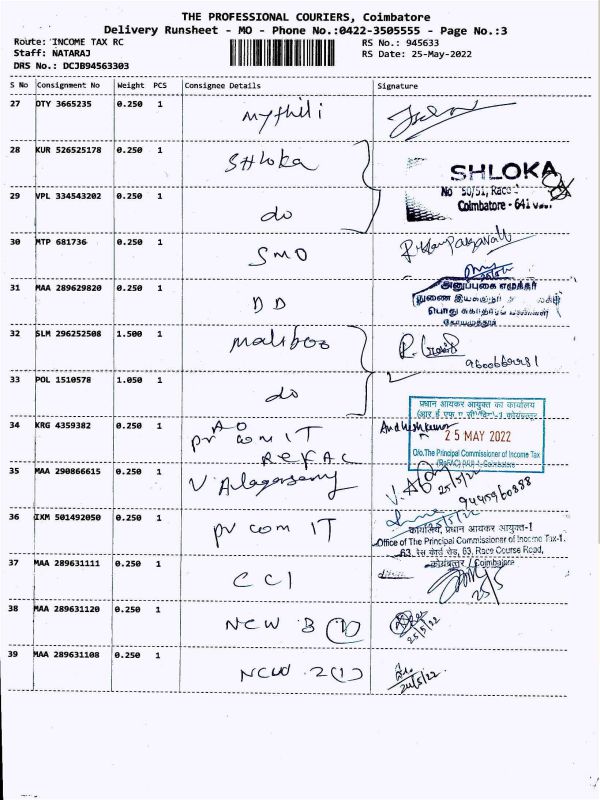 THE PROFESSIONAL COURIERS, Coimbatore
Delivery Runsheet - MO - Phone No.:0422-3505555 - Page No.:3
Route: INCOME TAX RC
RS No.: 945633
Staff: NATARAJ
RS Date: 25-May-2022
DRS No.: DCJB94563303
S No Consignment No Weight PCS Consignee Details Signature
27 DTY 3665235 0.250 1 mythili
28 KUR 526525178 0.250 1 SHloka
SHLOKA
No 50/51, Race
29 VPL 334543202 0.250 1 do
Coimbatore - 641
30 MTP 681736 0.250 1 SMO
31 MAA 289629820 0.250 1 DD
அனுப்புகை எழுத்தர்
துணை இயக்குநர்
பொது சுகாதாரம்
கோயமுத்தூர்
32 SLM 296252508 1.500 1 maliboo
33 POL 1510578 1.050 1 do
34 KRG 4359382 0.250 1 AO
pr com IT
REFAC
प्रधान आयकर आयुक्त का कार्यालय
25 MAY 2022
O/o.The Principal Commissioner of Income Tax
35 MAA 290866615 0.250 1 V Alagarsamy
25/5/22
9445960888
36 IXM 501492050 0.250 1 pr com IT
25/5/22
कार्यालय, प्रधान आयकर आयुक्त-1
Office of The Principal Commissioner of Income Tax-1.
63, रेस कोर्स रोड, 63, Race Course Road,
कोयंबत्तूर / Coimbatore
37 MAA 289631111 0.250 1 CCI
25/5
38 MAA 289631120 0.250 1 NCW B (1)
25/5/22
39 MAA 289631108 0.250 1 NCW 2(1)